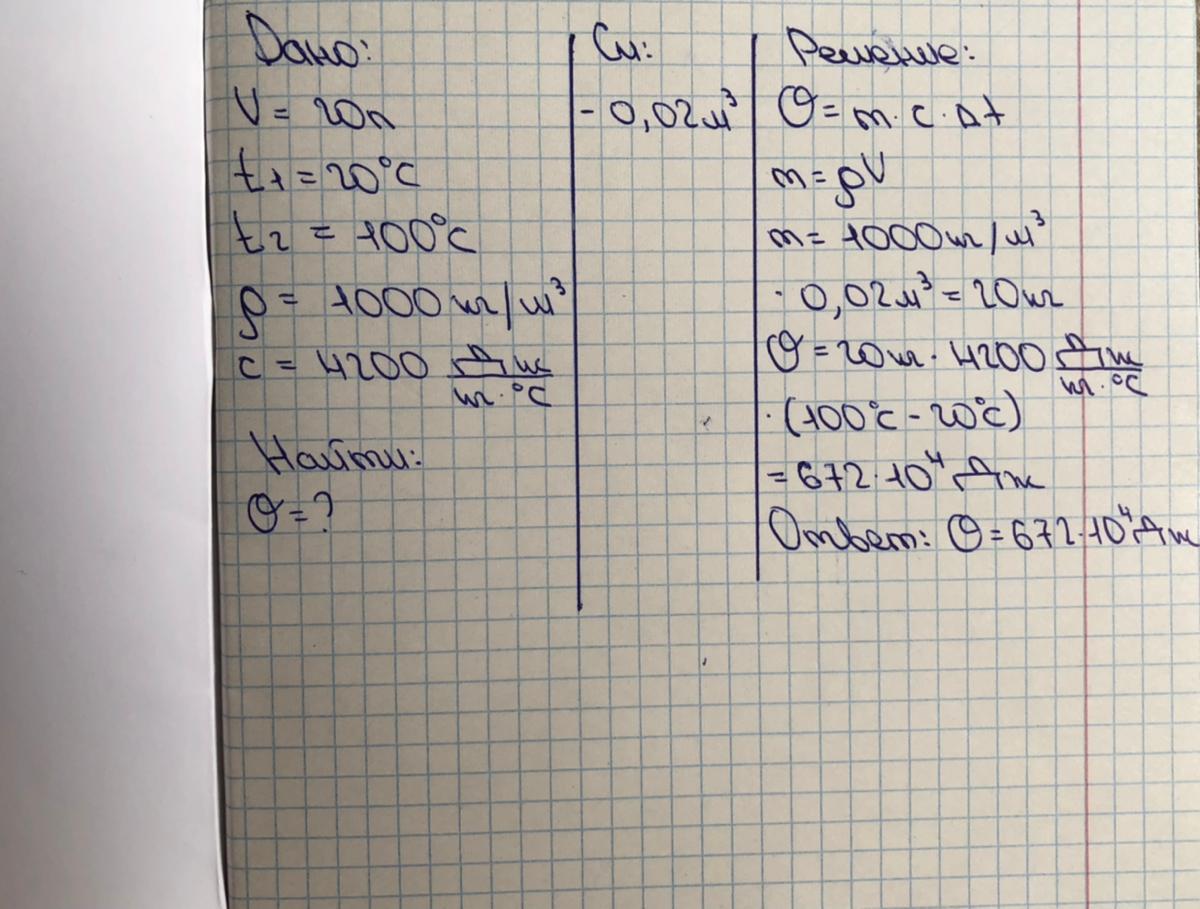 Дано:
V = 20л
t1 = 20°C
t2 = 100°C
ρ = 1000 кг/м³
c = 4200 Дж/кг·°C
Найти:
Q = ?
Си:
- 0,02 м³
Решение:
Q = m · c · Δt
m = ρV
m = 1000 кг/м³
· 0,02 м³ = 20 кг
Q = 20 кг · 4200 Дж/кг·°C
· (100°C - 20°C)
= 672 · 10⁴ Дж
Ответ: Q = 672 · 10⁴ Дж